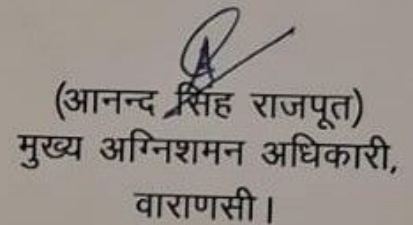 (आनन्द सिंह राजपूत)
मुख्य अग्निशमन अधिकारी,
वाराणसी।